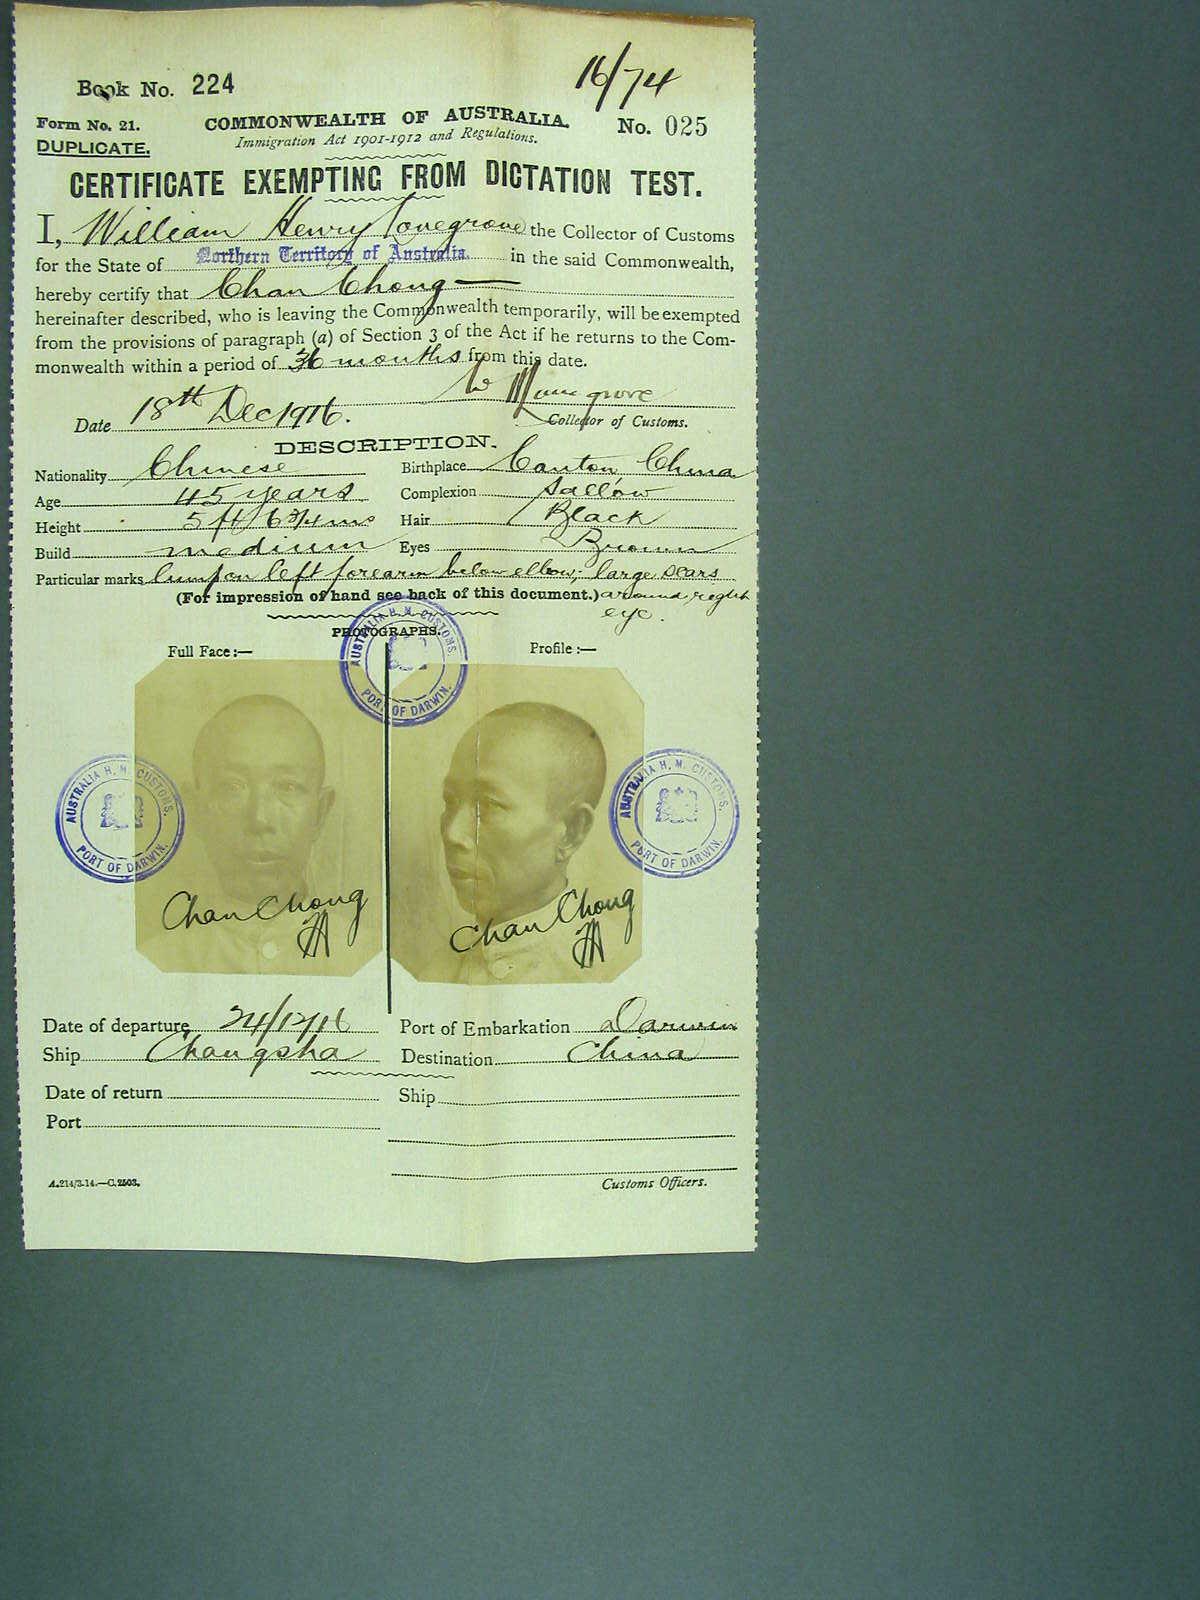 16/74
Book No. 224
Form No. 21.
COMMONWEALTH OF AUSTRALIA.
No. 025
DUPLICATE.
Immigration Act 1901-1912 and Regulations.
CERTIFICATE EXEMPTING FROM DICTATION TEST.
I, William Henry the Collector of Customs
for the State of Northern Territory of Australia. in the said Commonwealth,
hereby certify that Chan Chong
hereinafter described, who is leaving the Commonwealth temporarily, will be exempted
from the provisions of paragraph (a) of Section 3 of the Act if he returns to the Com-
monwealth within a period of 36 months from this date.
Date 18th Dec 1916.
Collector of Customs.
DESCRIPTION.
Nationality Chinese Birthplace Canton China
Age 45 years Complexion Sallow
Height 5 ft 6 3/4 ins Hair Black
Build medium Eyes Brown
Particular marks lump on left forearm below elbow; large scars
(For impression of hand see back of this document.) around right
eye.
PHOTOGRAPHS.
Full Face :— Profile :—
AUSTRALIA H. M. CUSTOMS.
PORT OF DARWIN.
AUSTRALIA H. M. CUSTOMS.
PORT OF DARWIN.
AUSTRALIA H. M. CUSTOMS.
PORT OF DARWIN.
Chan Chong
Chan Chong
Date of departure 24/12/16 Port of Embarkation Darwin
Ship Changsha Destination China
Date of return Ship
Port
A.214/3.14.—C.2503. Customs Officers.